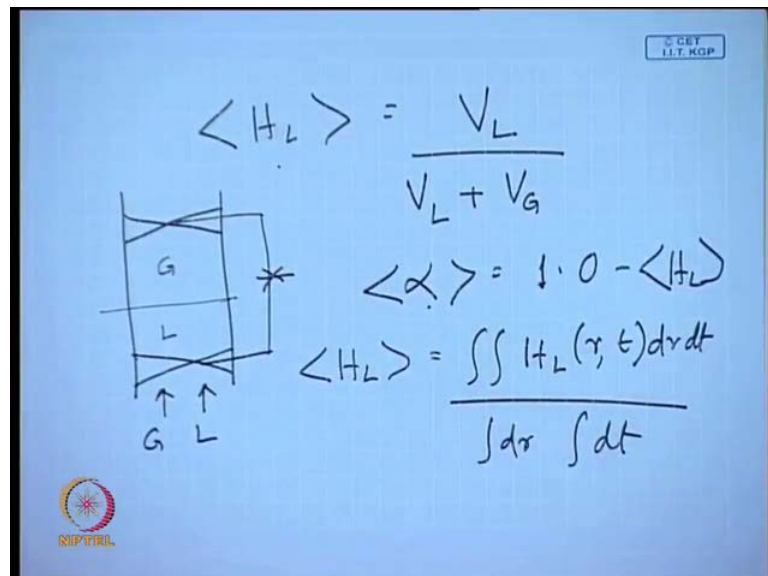 © CET
I.I.T. KGP
<H_L> = V_L / (V_L + V_G)
G
L
G L
<α> = 1.0 - <H_L>
<H_L> = ∫∫ H_L (r, t) dr dt / ∫dr ∫dt
NPTEL